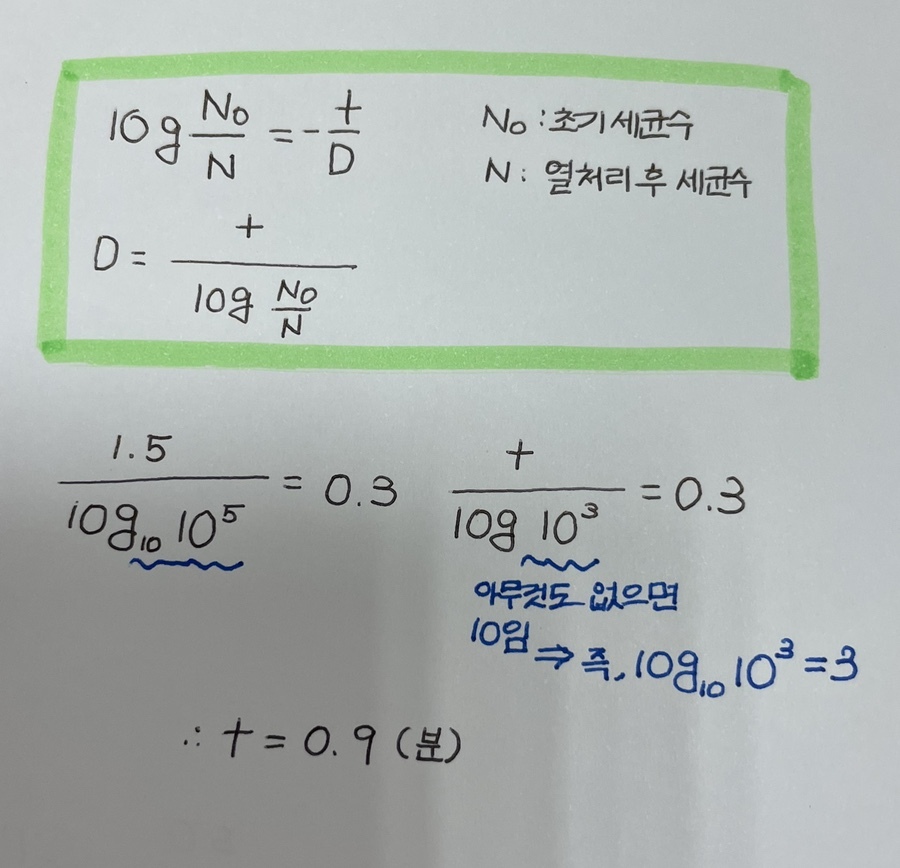 log N₀/N = - t/D
N₀ : 초기 세균수
N : 열처리 후 세균수
D = t / log N₀/N
1.5 / log₁₀ 10⁵ = 0.3
t / log 10³ = 0.3
아무것도 없으면
10임
⇒ 즉, log₁₀ 10³ = 3
∴ t = 0.9 (분)